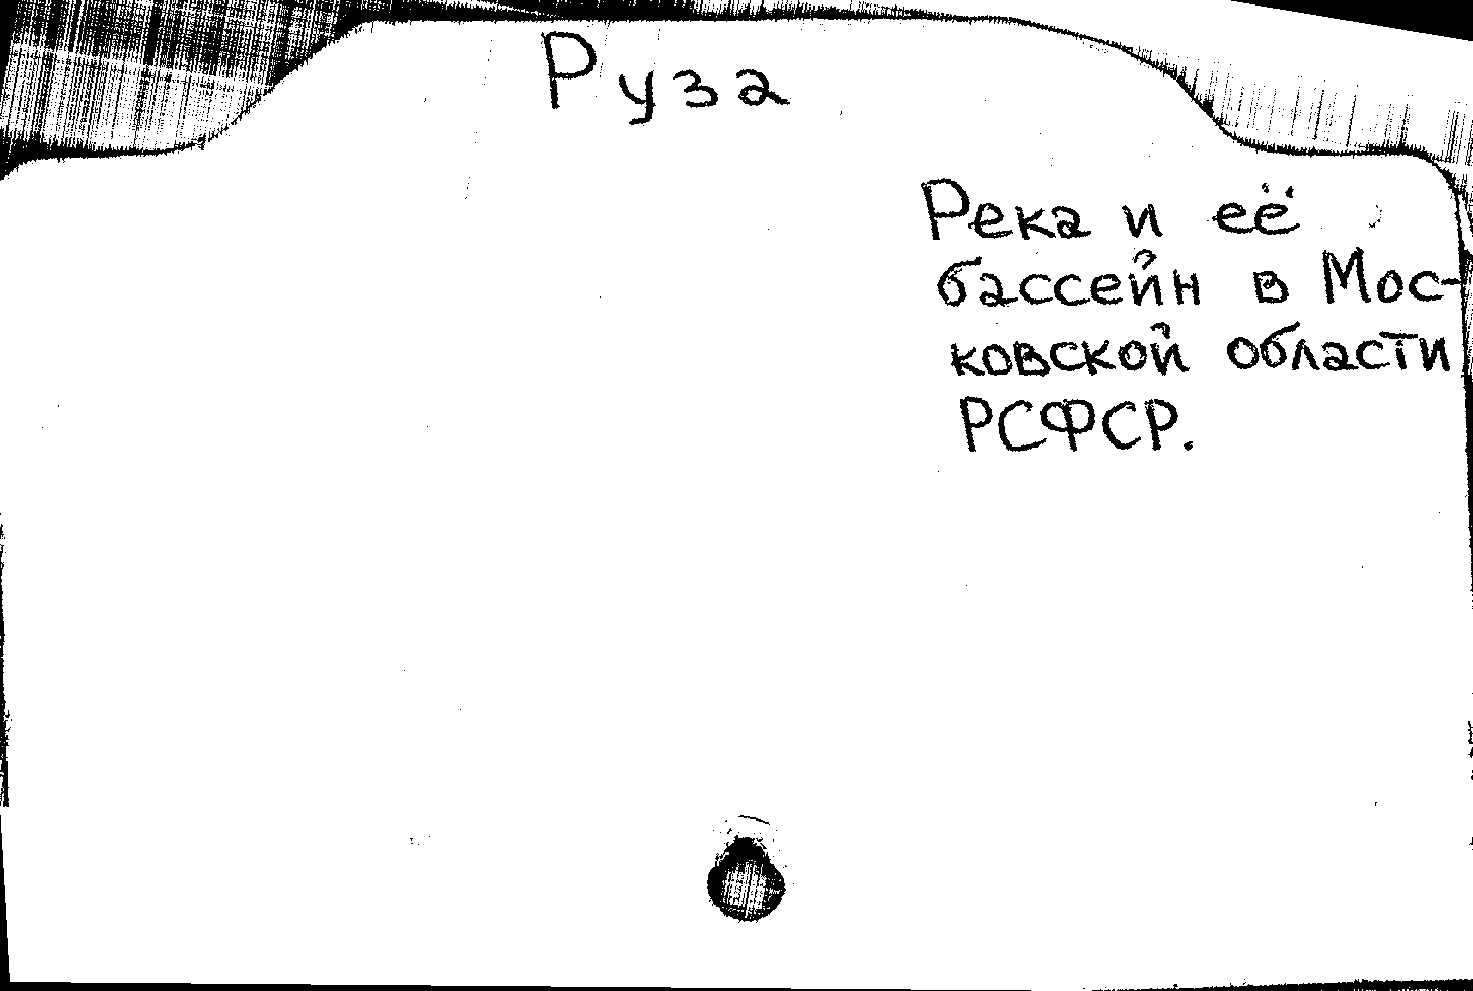 Руза
Река и её
бассейн в Мос-
ковской области
РСФСР.